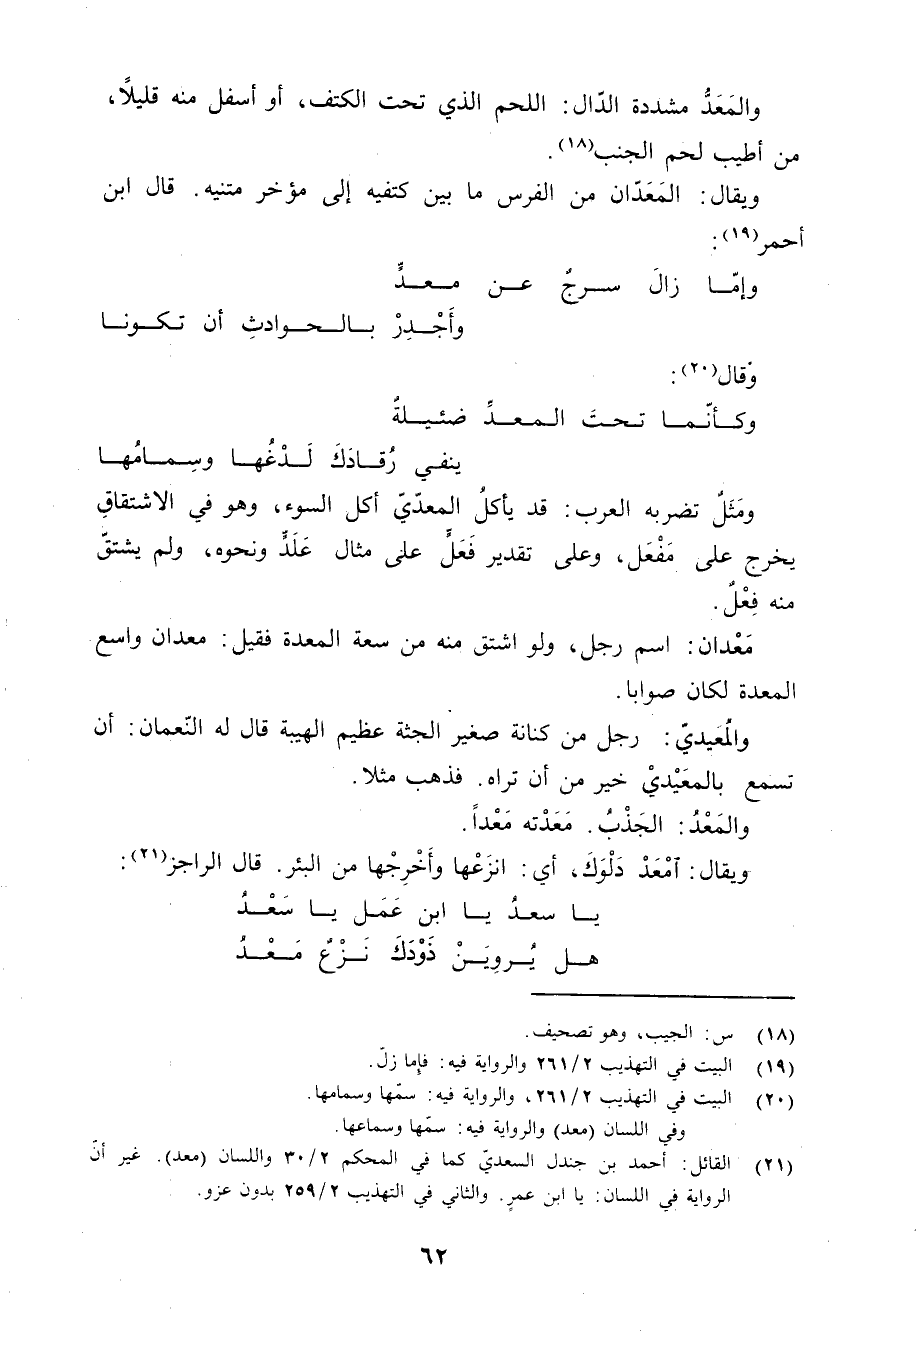 والمَعَدُّ مشددة الدّال: اللحم الذي تحت الكتف، أو أسفل منه قليلاً،
من أطيب لحم الجنب(١٨).
ويقال: المَعَدّان من الفرس ما بين كتفيه إلى مؤخر متنيه. قال ابن
أحمر(١٩):
وإمّا زالَ سرجٌ عن معدٍّ
وأَجْدِرْ بالحوادثِ أن تكونا
وقال(٢٠):
وكأنّما تحتَ المعدِّ ضئيلةٌ
ينفي رُقادَكَ لَدْغُها وسِمامُها
ومَثَلٌ تضربه العرب: قد يأكلُ المعدّيّ أكل السوء، وهو في الاشتقاقِ
يخرج على مَفْعَل، وعلى تقدير فَعَلٍّ على مثال عَلَدٍّ ونحوه، ولم يشتقّ
منه فِعْلٌ.
مَعْدان: اسم رجل، ولو اشتق منه من سعة المعدة فقيل: معدان واسع
المعدة لكان صوابا.
والمُعيديّ: رجل من كنانة صغير الجثة عظيم الهيبة قال له النّعمان: أن
تسمع بالمعَيْديْ خير من أن تراه. فذهب مثلا.
والمَعْدُ: الجَذْبُ. مَعَدْته مَعْداً.
ويقال: آمْعَدْ دَلْوَكَ، أي: انزَعْها وأَخْرِجْها من البئر. قال الراجز(٢١):
يا سعدُ يا ابن عَمَل يا سَعْدُ
هل يُروِيَنْ ذَوْدَكَ نَزْعٌ مَعْدُ
(١٨) س: الجيب، وهو تصحيف.
(١٩) البيت في التهذيب ٢٦١/٢ والرواية فيه: فإما زلّ.
(٢٠) البيت في التهذيب ٢٦١/٢، والرواية فيه: سمّها وسمامها.
وفي اللسان (معد) والرواية فيه: سمّها وسماعها.
(٢١) القائل: أحمد بن جندل السعديّ كما في المحكم ٣٠/٢ واللسان (معد). غير أنّ
الرواية في اللسان: يا ابن عمرٍ. والثاني في التهذيب ٢٥٩/٢ بدون عزو.
٦٢